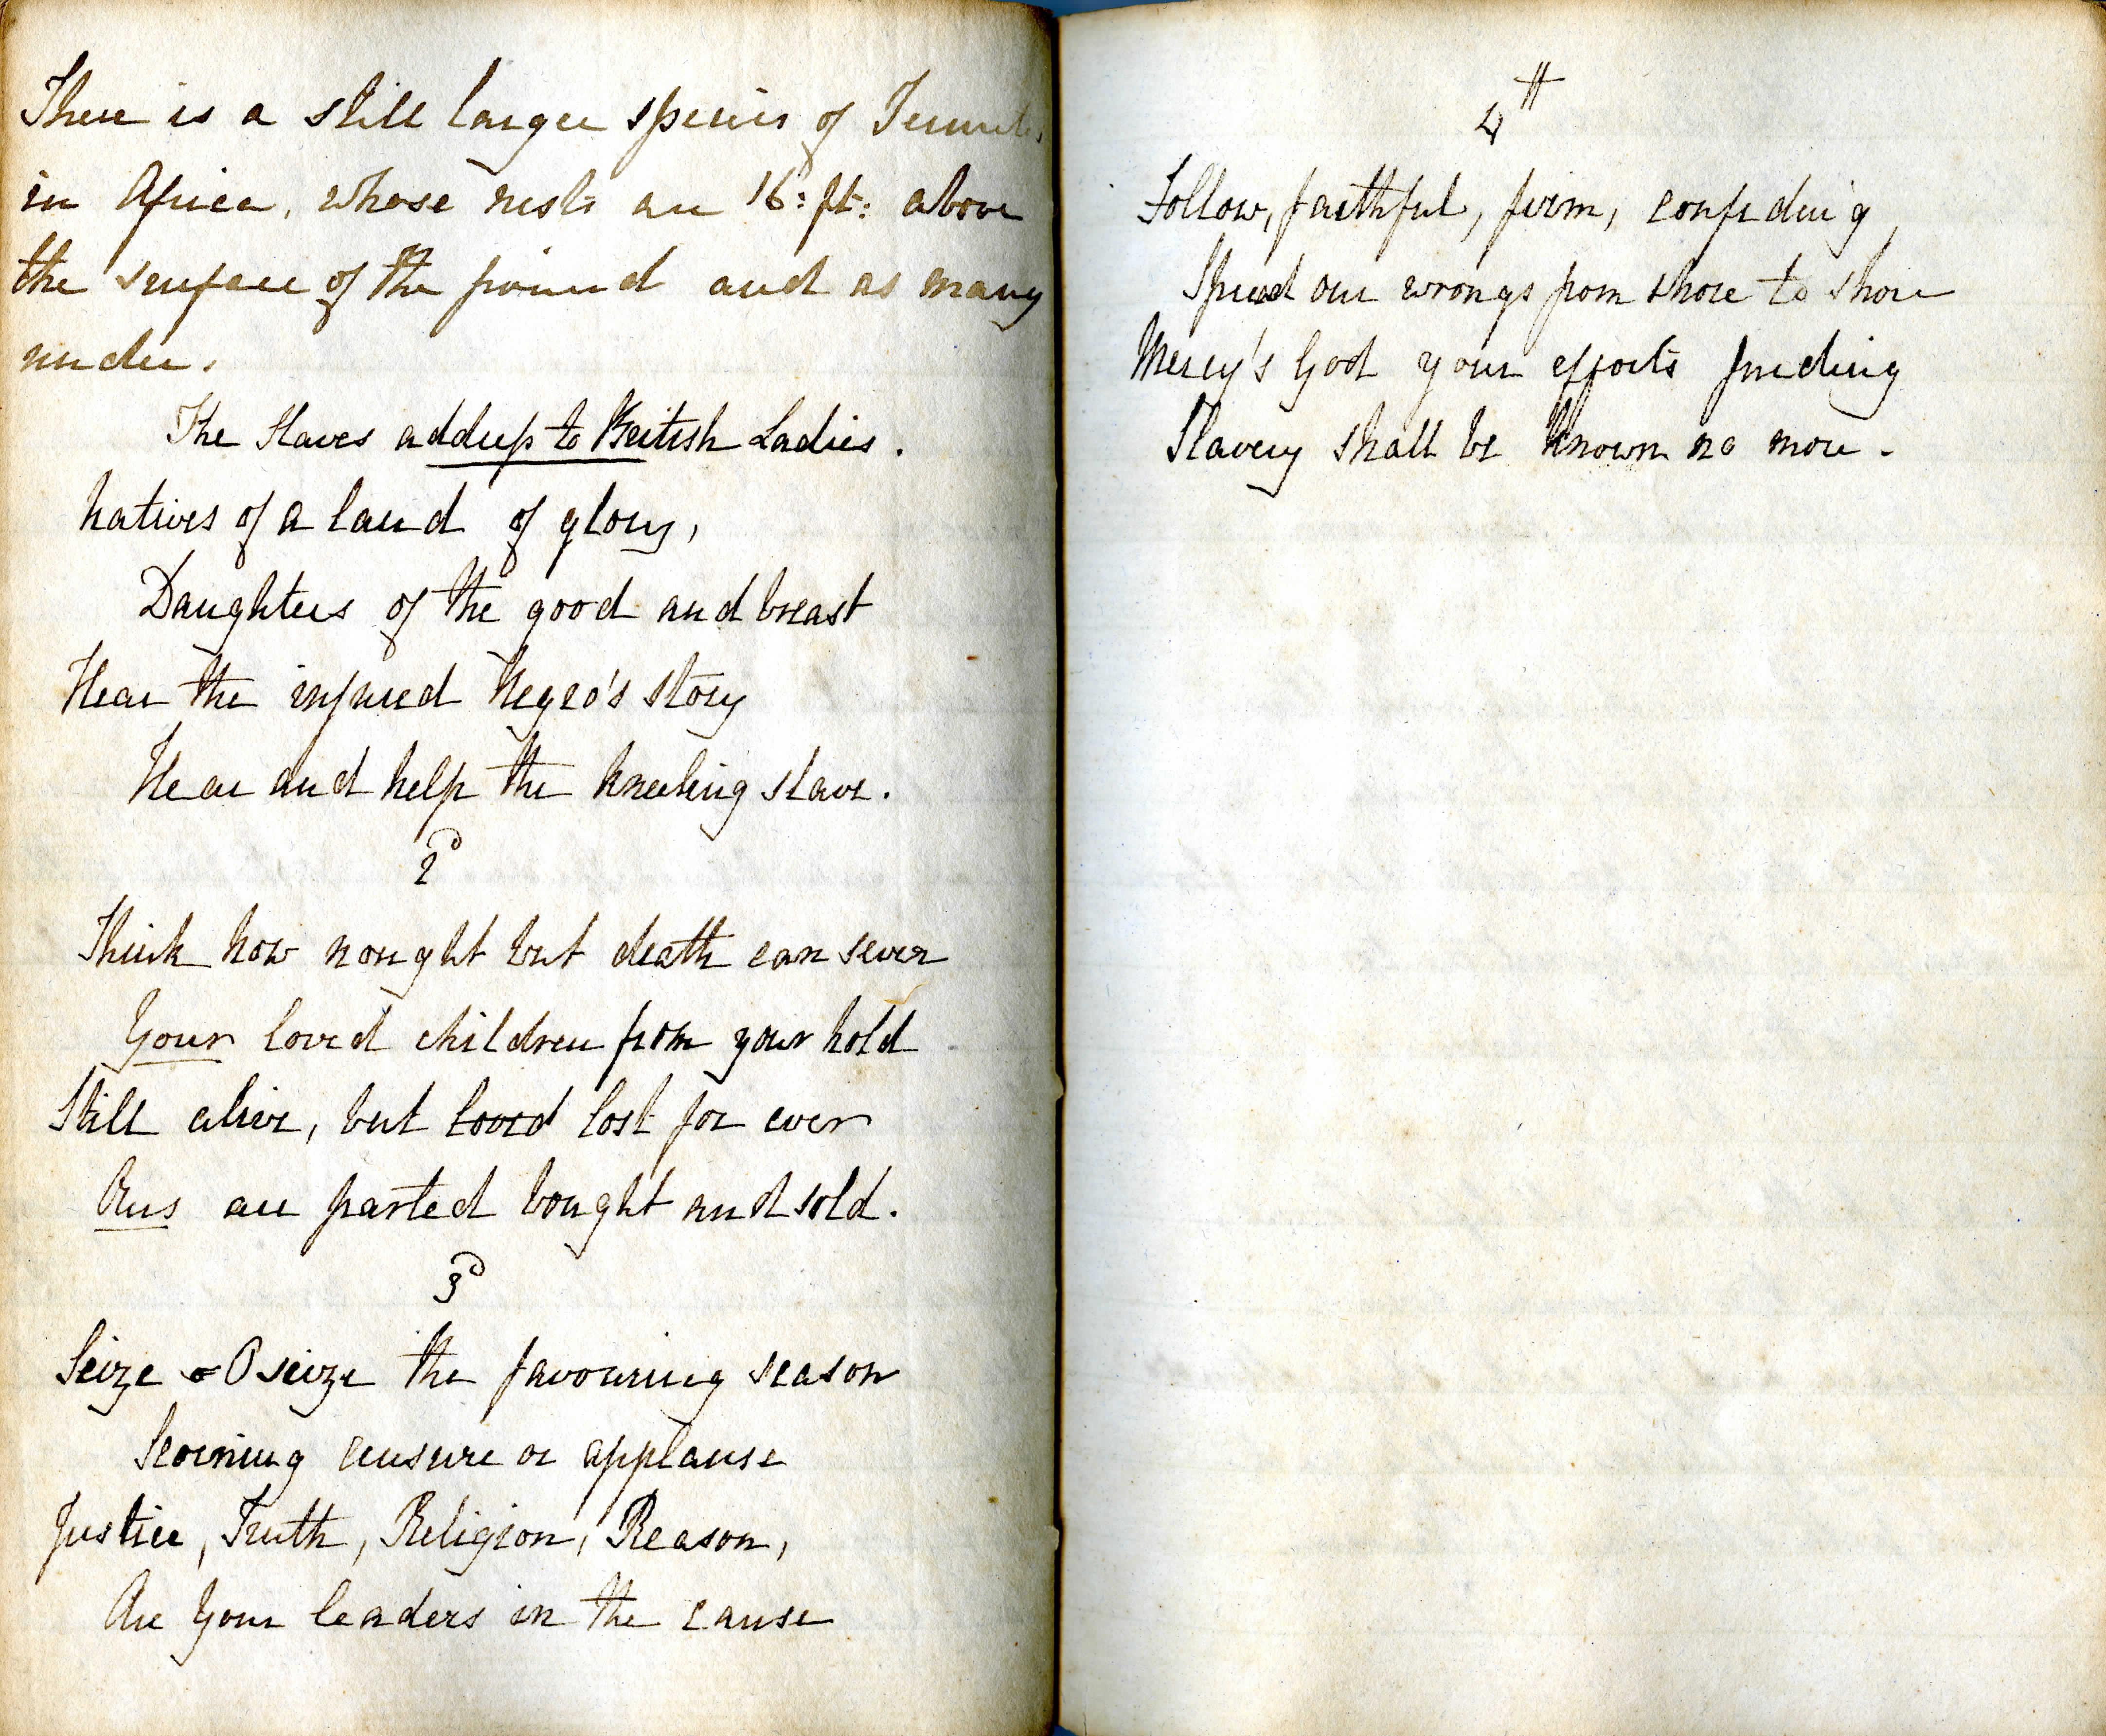 There is a still larger species of Termites
in Africa, whose nests are 16: ft: above
the surface of the ground and as many
under.
The Slaves address to British Ladies.
Natives of a land of glory,
Daughters of the good and breast
Hear the injured Negro's story
Hear and help the kneeling slave.
2d
Think how nought but death can sever
Your loved children from your hold
Still alive, but loved lost for ever
Ours are parted bought and sold.
3d
Seize o O seize the favouring season
Scorning censure or applause
Justice, Truth, Religion, Reason,
Are Your leaders in the cause
4th
Follow, faithful, firm, confiding,
Spread our wrongs from shore to shore
Mercy's God your efforts guiding
Slavery shall be known no more.